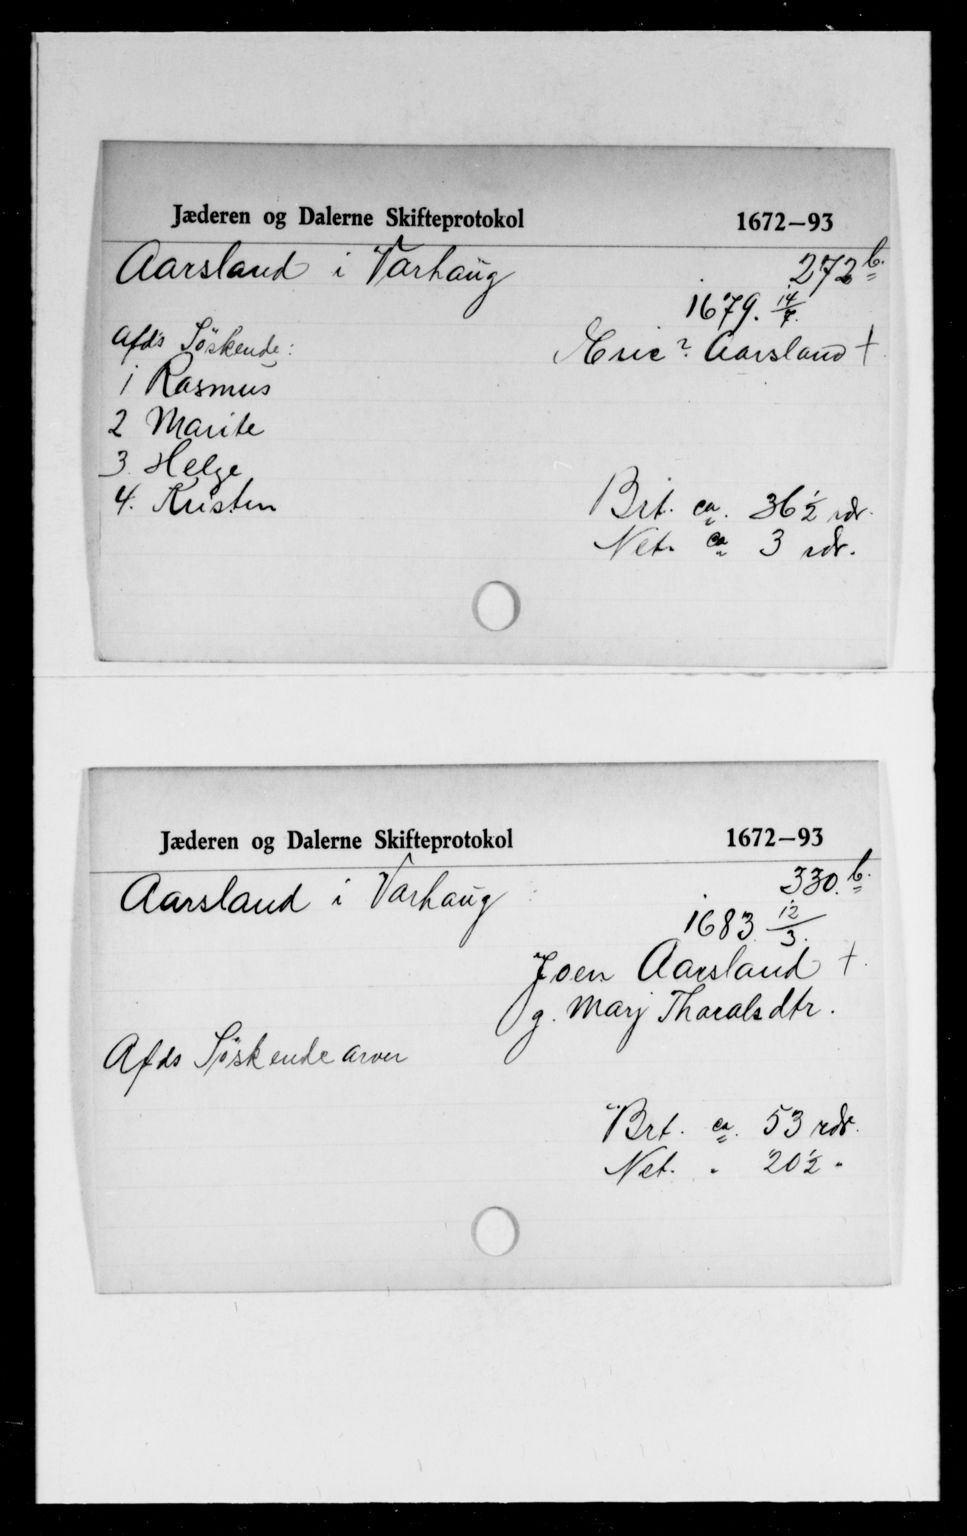 Jæderen og Dalerne Skifteprotokol 1672–93
Aarsland i Varhaug 272 b.
1679. 14/7.
Afd's Söskende: Eric? Aarsland †
1 Rasmus
2 Marite
3. Helge
4. Kristen
Brt. ca. 36 1/2 rdr.
Net. ca 3 rdr.
Jæderen og Dalerne Skifteprotokol 1672–93
Aarsland i Varhaug 330. b.
1683 12/3.
Joen Aarsland †.
g. Marj Tharalsdtr.
Afds Söskende arver
Brt. ca. 53 rdr.
Net. " 20 1/2 "